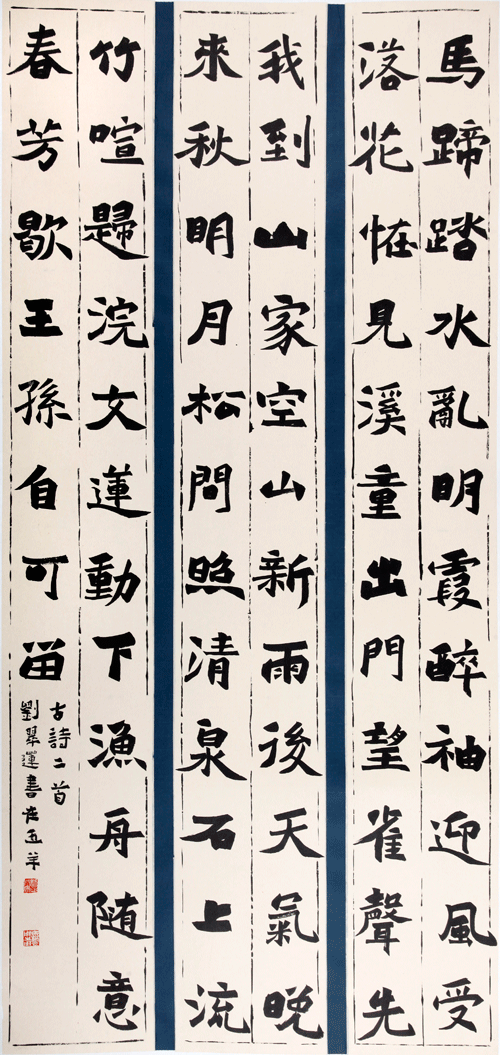 馬蹄踏水亂明霞醉袖迎風受
落花恠見溪童出門望雀聲先
我到山家空山新雨後天氣晚
來秋明月松間照清泉石上流
竹喧歸浣女蓮動下漁舟随意
春芳歇王孫自可留
古詩二首
劉翠蓮書在五羊